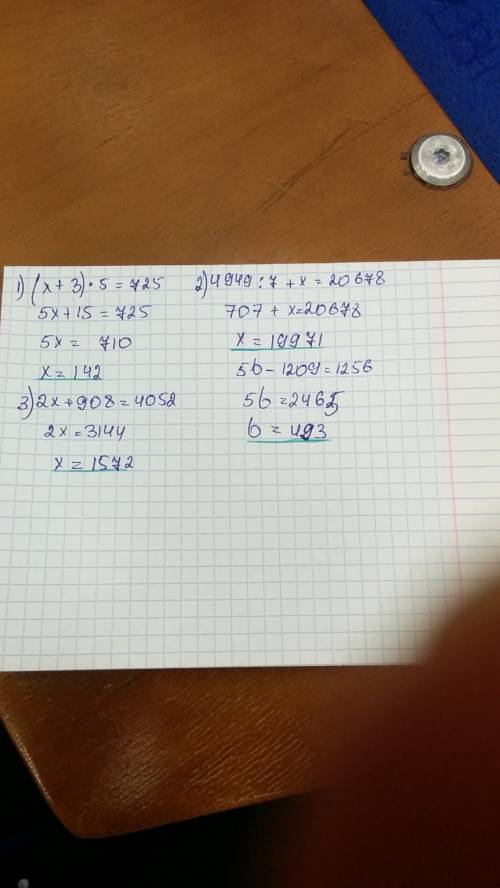 1) (x + 3) · 5 = 725
5x + 15 = 725
5x = 710
x = 142
3) 2x + 908 = 4052
2x = 3144
x = 1572
2) 4949 : 7 + x = 20678
707 + x = 20678
x = 19971
5b - 1209 = 1256
5b = 2465
b = 493